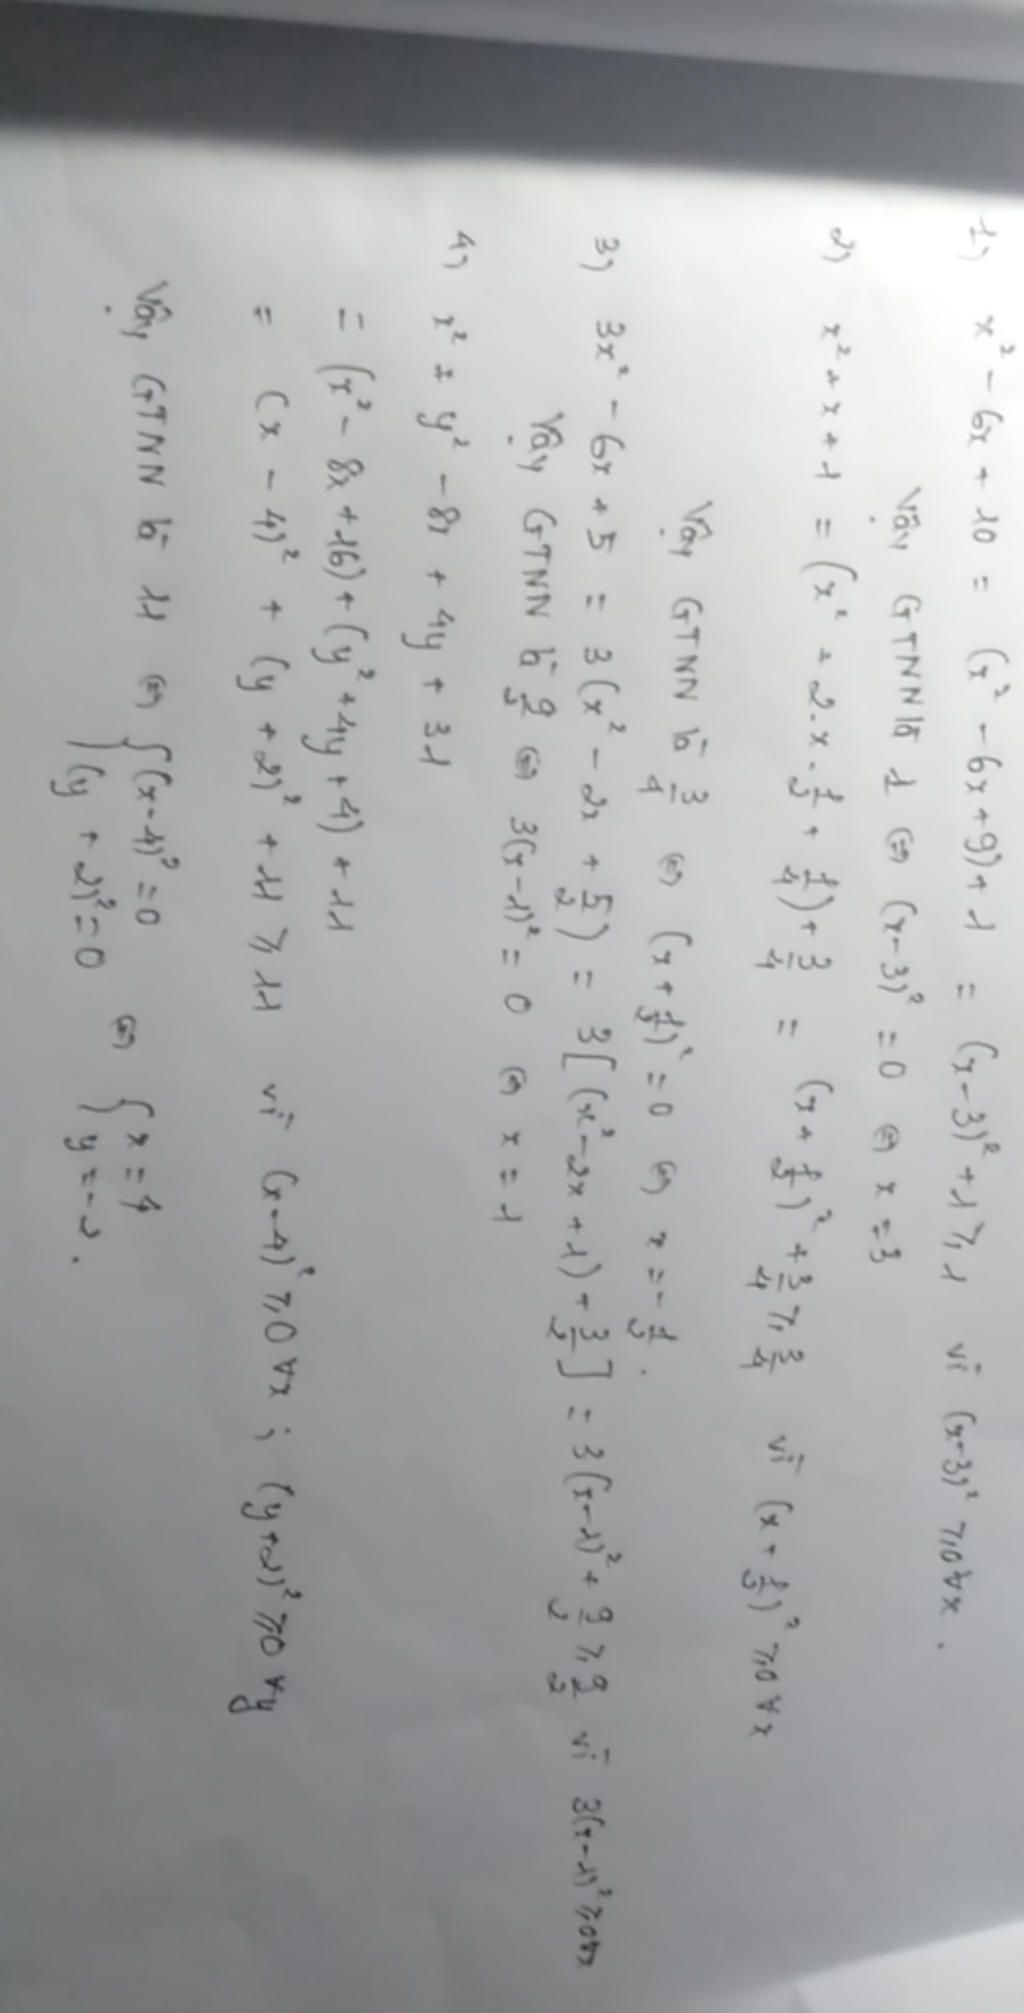 1) x² - 6x + 10 = (x² - 6x + 9) + 1 = (x - 3)² + 1 ≥ 1 vì (x-3)² ≥ 0 ∀x.
Vậy GTNN là 1 ⇔ (x-3)² = 0 ⇔ x = 3
2) x² + x + 1 = (x² + 2.x.1/2 + 1/4) + 3/4 = (x + 1/2)² + 3/4 ≥ 3/4 vì (x + 1/2)² ≥ 0 ∀x
Vậy GTNN là 3/4 ⇔ (x + 1/2)² = 0 ⇔ x = -1/2.
3) 3x² - 6x + 5 = 3(x² - 2x + 5/2) = 3[(x² - 2x + 1) + 3/2] = 3(x-1)² + 9/2 ≥ 9/2 vì 3(x-1)² ≥ 0 ∀x
Vậy GTNN là 9/2 ⇔ 3(x-1)² = 0 ⇔ x = 1
4) x² + y² - 8x + 4y + 31
= (x² - 8x + 16) + (y² + 4y + 4) + 11
= (x - 4)² + (y + 2)² + 11 ≥ 11 vì (x-4)² ≥ 0 ∀x ; (y+2)² ≥ 0 ∀y
Vậy GTNN là 11 ⇔ { (x-4)² = 0 ⇔ { x = 4
(y + 2)² = 0 y = -2.